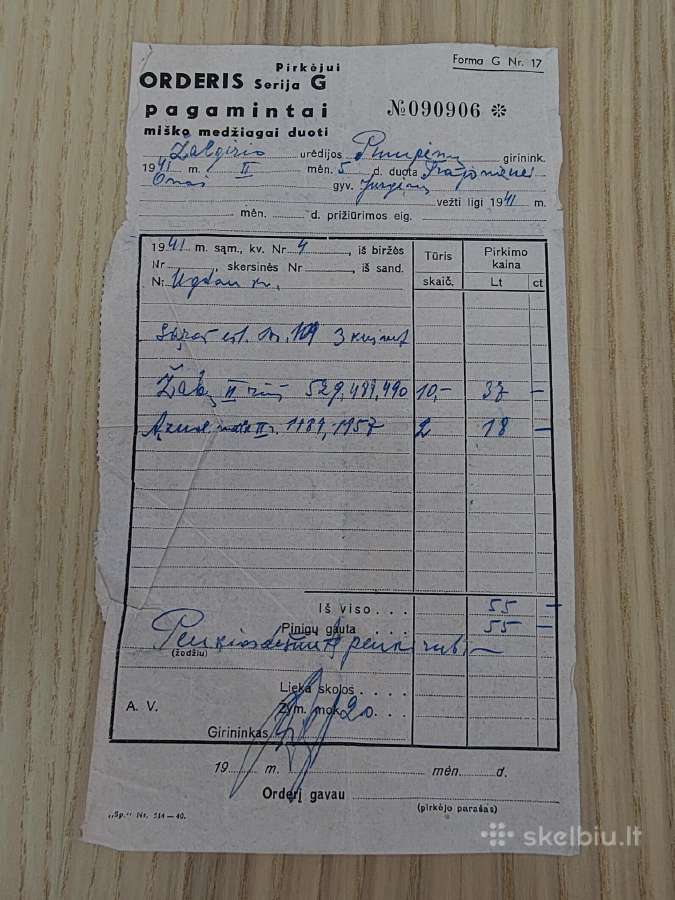 Pirkėjui
Forma G Nr. 17
ORDERIS Serija G
pagamintai
№090906
miško medžiagai duoti
Žalgirio urėdijos Pumpėnų girinink.
1941 m. II mėn. 5 d. duota
Onai gyv. vežti ligi 1941 m.
mėn. d. prižiūrimos eig.
1941 m. sąm., kv. Nr 4, iš biržės
Tūris
Pirkimo kaina
Nr , skersinės Nr , iš sand.
skaič.
Lt ct
N:
Nr. 109 3
II 529, 489, 490 10,- 37 -
II 1957 2 18 -
Iš viso . . . 55 -
Pinigų gauta . 55 -
Penkiasdešimt penki rub. -
(žodžiu)
Lieka skolos . . . .
A. V.
Žym. mok. 20 . . .
Girininkas
19 m. mėn. d.
Orderį gavau
(pirkėjo parašas)
„Sp." Nr. 514 — 40.
skelbiu.lt